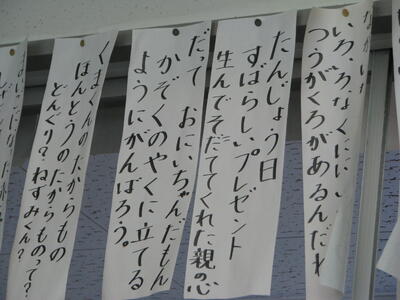 いろいろなくにに
つうがくろがあるんだね
たんじょう日
すばらしいプレゼント
生んでそだててくれた親の心
だって おにいちゃんだもん
かぞくのやくに立てる
ようにがんばろう。
くまくんのたからもの
ほんとうのたからものって?
どんぐり?ねずみくん?